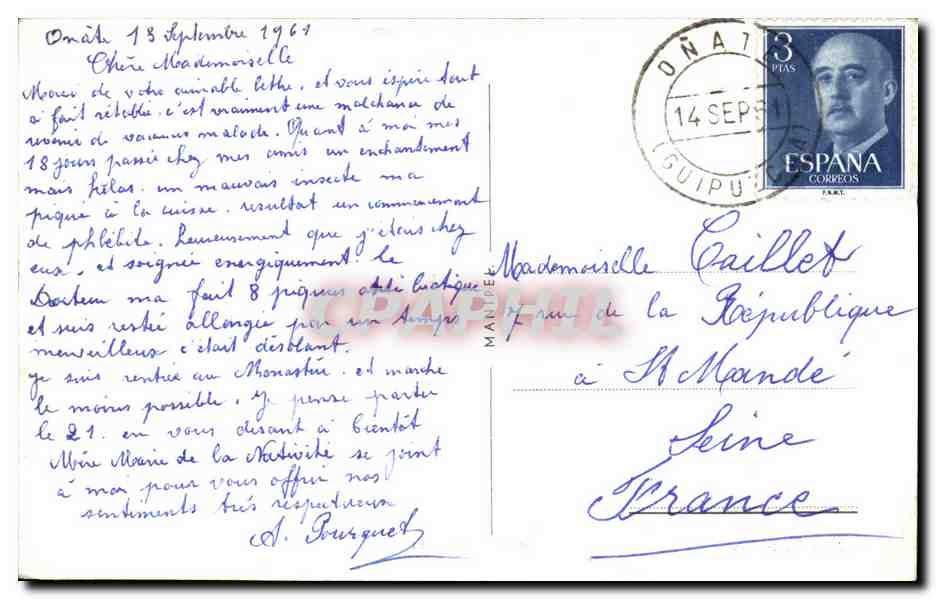 Onâte 13 Septembre 1961
Chère Mademoiselle
Merci de votre aimable lettre. et vous espère tout
à fait rétablie. c'est vraiment une malchance de
revenir de vacances malade. Quant à moi mes
18 jours passée chez mes amis un enchantement
mais hélas. un mauvais insecte ma
piqué à la cuisse. resultat un commencement
de phlébite. heureusement que j'étais chez
eux. et soignée energiquement. le
Docteur ma fait 8 piqures
et suis restée allongée par un temps
merveilleux c'était désolant.
je suis rentrée au Monastère. et marche
le moins possible. je pense partir
le 21. en vous disant à bientôt
Mère Marie de la Nativité se joint
à moi pour vous offrir nos
sentiments très respectueux
A. Pourquet
MANIPEL
CPAPHIL
OÑATE
14 SEP 61
(GUIPUZCOA)
3
PTAS
ESPAÑA
CORREOS
F.N.M.T.
Mademoiselle Caillet
7 rue de la République
à St Mandé
Seine
France